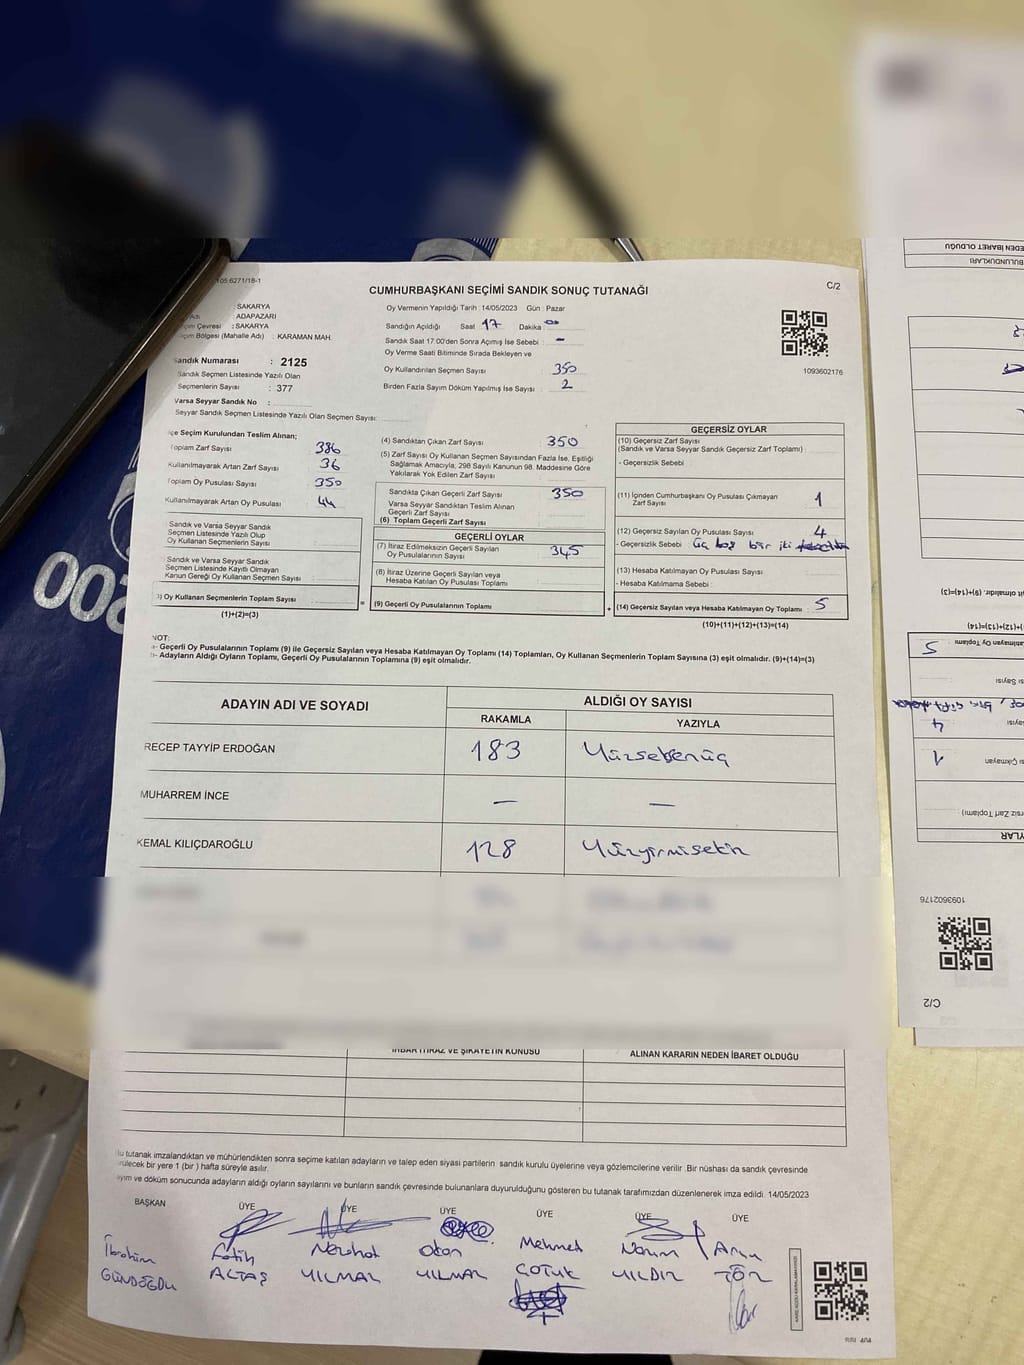 105 6271/18-1
CUMHURBAŞKANI SEÇİMİ SANDIK SONUÇ TUTANAĞI
C/2
: SAKARYA
Adı : ADAPAZARI
Seçim Çevresi : SAKARYA
Seçim Bölgesi (Mahalle Adı) : KARAMAN MAH.
Sandık Numarası : 2125
Sandık Seçmen Listesinde Yazılı Olan
Seçmenlerin Sayısı : 377
Varsa Seyyar Sandık No :
Seyyar Sandık Seçmen Listesinde Yazılı Olan Seçmen Sayısı:
Oy Vermenin Yapıldığı Tarih : 14/05/2023 Gün : Pazar
Sandığın Açıldığı Saat 17 Dakika : 00
Sandık Saat 17:00'den Sonra Açımış İse Sebebi : -
Oy Verme Saati Bitiminde Sırada Bekleyen ve
Oy Kullandırılan Seçmen Sayısı : 350
Birden Fazla Sayım Döküm Yapılmış İse Sayısı : 2
1093602176
İlçe Seçim Kurulundan Teslim Alınan;
Toplam Zarf Sayısı : 386
Kullanılmayarak Artan Zarf Sayısı : 36
Toplam Oy Pusulası Sayısı : 350
Kullanılmayarak Artan Oy Pusulası : 44
Sandık ve Varsa Seyyar Sandık
Seçmen Listesinde Yazılı Olup
Oy Kullanan Seçmenlerin Sayısı :
Sandık ve Varsa Seyyar Sandık
Seçmen Listesinde Kayıtlı Olmayan
Kanun Gereği Oy Kullanan Seçmen Sayısı :
3) Oy Kullanan Seçmenlerin Toplam Sayısı :
(1)+(2)=(3)
(4) Sandıktan Çıkan Zarf Sayısı : 350
(5) Zarf Sayısı Oy Kullanan Seçmen Sayısından Fazla İse, Eşitliği
Sağlamak Amacıyla, 298 Sayılı Kanunun 98. Maddesine Göre
Yakılarak Yok Edilen Zarf Sayısı
Sandıkta Çıkan Geçerli Zarf Sayısı : 350
Varsa Seyyar Sandıktan Teslim Alınan
Geçerli Zarf Sayısı
(6) Toplam Geçerli Zarf Sayısı
GEÇERLİ OYLAR
(7) İtiraz Edilmeksizin Geçerli Sayılan
Oy Pusulalarının Sayısı : 345
(8) İtiraz Üzerine Geçerli Sayılan veya
Hesaba Katılan Oy Pusulası Toplamı
= (9) Geçerli Oy Pusulalarının Toplamı
GEÇERSİZ OYLAR
(10) Geçersiz Zarf Sayısı
(Sandık ve Varsa Seyyar Sandık Geçersiz Zarf Toplamı)
- Geçersizlik Sebebi
(11) İçinden Cumhurbaşkanı Oy Pusulası Çıkmayan
Zarf Sayısı : 1
(12) Geçersiz Sayılan Oy Pusulası Sayısı : 4
- Geçersizlik Sebebi : üç boş bir iki
(13) Hesaba Katılmayan Oy Pusulası Sayısı
- Hesaba Katılmama Sebebi :
+ (14) Geçersiz Sayılan veya Hesaba Katılmayan Oy Toplamı : 5
(10)+(11)+(12)+(13)=(14)
NOT:
- Geçerli Oy Pusulalarının Toplamı (9) ile Geçersiz Sayılan veya Hesaba Katılmayan Oy Toplamı (14) Toplamları, Oy Kullanan Seçmenlerin Toplam Sayısına (3) eşit olmalıdır. (9)+(14)=(3)
- Adayların Aldığı Oyların Toplamı, Geçerli Oy Pusulalarının Toplamına (9) eşit olmalıdır.
ADAYIN ADI VE SOYADI
ALDIĞI OY SAYISI
RAKAMLA YAZIYLA
RECEP TAYYİP ERDOĞAN 183 Yüzseksenüç
MUHARREM İNCE — —
KEMAL KILIÇDAROĞLU 128 Yüzyirmisekiz
İHBAR İTİRAZ VE ŞİKAYETİN KONUSU ALINAN KARARIN NEDEN İBARET OLDUĞU
Bu tutanak imzalandıktan ve mühürlendikten sonra seçime katılan adayların ve talep eden siyasi partilerin sandık kurulu üyelerine veya gözlemcilerine verilir .Bir nüshası da sandık çevresinde
görülecek bir yere 1 (bir ) hafta süreyle asılır.
Sayım ve döküm sonucunda adayların aldığı oyların sayılarını ve bunların sandık çevresinde bulunanlara duyurulduğunu gösteren bu tutanak tarafımızdan düzenlenerek imza edildi. 14/05/2023
BAŞKAN ÜYE ÜYE ÜYE ÜYE ÜYE ÜYE
İbrahim Fatih Nezahat Okan Mehmet Narım Arzu
GÜNDOĞDU ALTAŞ YILMAZ YILMAZ ÇOTUK YILDIZ TÖR
EDEN İBARET OLDUĞU
BULUNDUKLARI
şit olmalıdır. (9)+(14)=(3)
)+(12)+(13)=(14)
atılmayan Oy Toplamı : 5
sı Sayısı
çift
4
sı Çıkmayan 1
rsiz Zarf Toplamı)
YLAR
1093602176
C/2